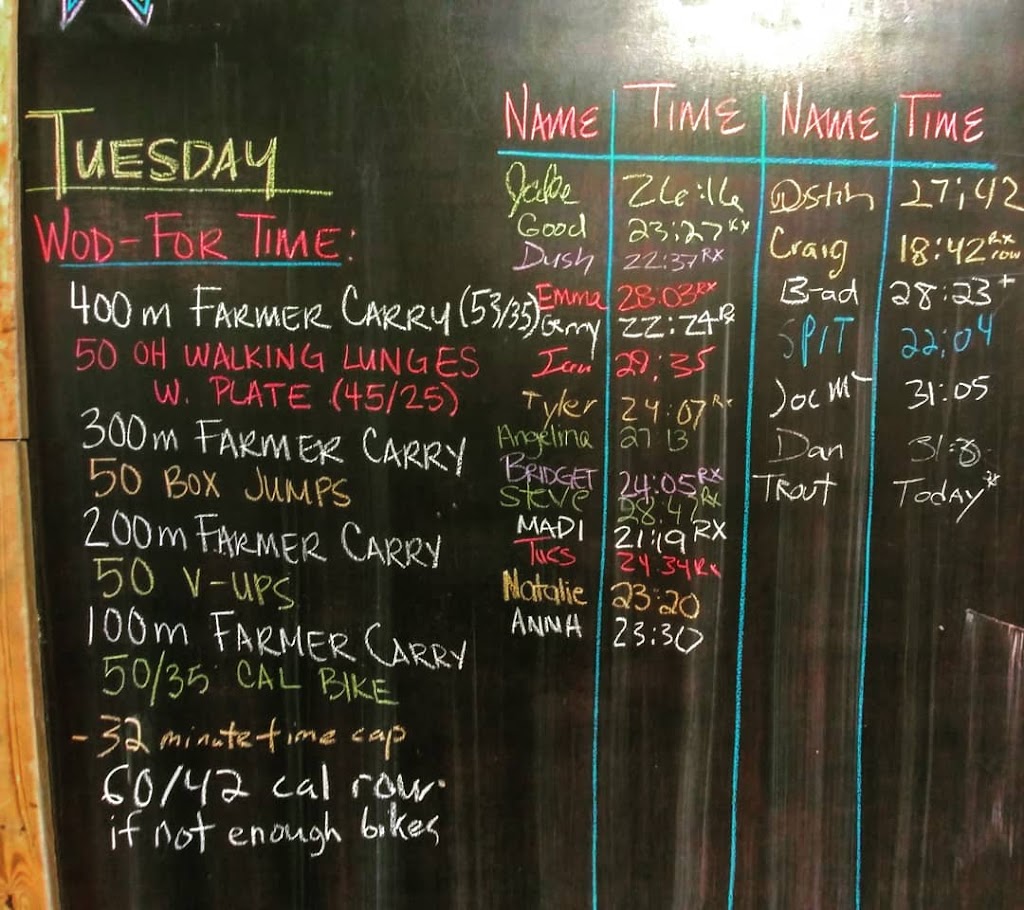 TUESDAY
WOD-FOR TIME:
400m FARMER CARRY (53/35)
50 OH WALKING LUNGES
W. PLATE (45/25)
300m FARMER CARRY
50 BOX JUMPS
200m FARMER CARRY
50 V-UPS
100m FARMER CARRY
50/35 CAL BIKE
- 32 minute time cap
60/42 cal row
if not enough bikes
NAME TIME NAME TIME
Jake 26:16
Good 23:27 RX
Dush 22:37 RX
Emma 28:03 RX
Gerry 22:24 Rx
Ian 29:35
Tyler 24:07 Rx
Angelina 27 13
BRIDGET 24:05 RX
STEVE 28:47 Rx
MADI 21:19 RX
Tues 24:34 Rx
Natalie 23:20
ANNA 23:30
27:42
Craig 18:42 Rx row
B-ad 28:23+
SPIT 22:04
Joe M 31:05
Dan
TROUT TODAY Rx